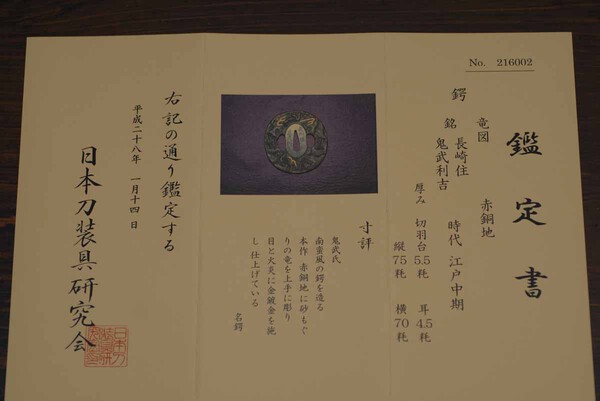 No. 216002
鑑定書
鍔
竜図 赤銅地
銘 長崎住
鬼武利吉
時代 江戸中期
厚み 切羽台 5.5 粍 耳 4.5 粍
縦 75 粍 横 70 粍
寸評
鬼武氏
南蛮風の鍔を造る
本作 赤銅地に砂もぐ
りの竜を上手に彫り
目と火炎に金鍍金を施
し 仕上げている
名鍔
右記の通り鑑定する
平成二十八年 一月十四日
日本刀装具研究会